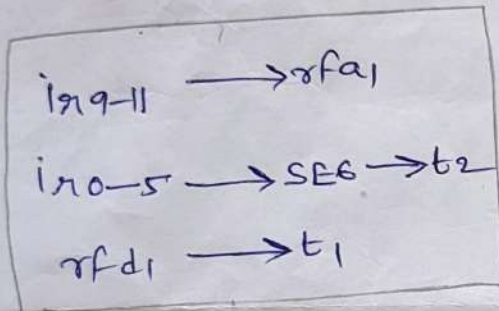 ir9-11 → rfa1
ir0-5 → SE6 → t2
rfd1 → t1